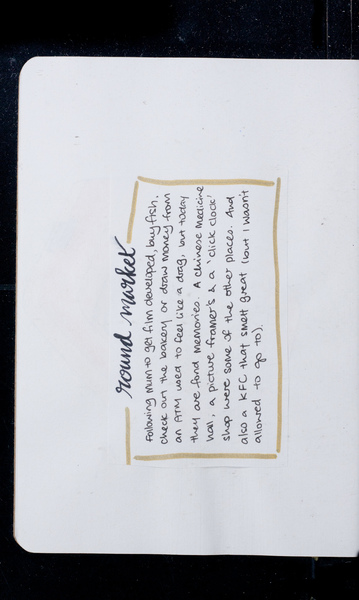 round market
following mum to get film developed, buy fish,
check out the bakery or draw money from
an ATM used to feel like a drag, but today
they are fond memories. A chinese medicine
hall, a picture framer's & a 'click clock'
shop were some of the other places. And
also a KFC that smelt great (but I wasn't
allowed to go to).